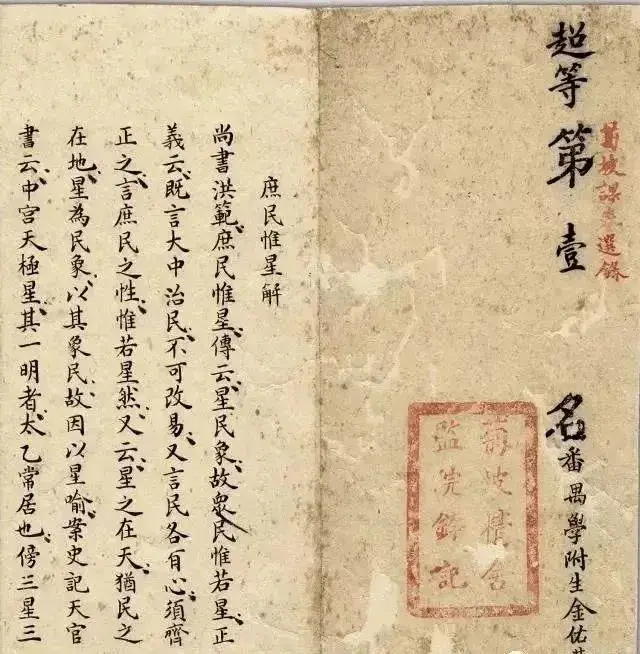 菊坡課卷選錄
超等第壹名
番禺學附生金佑
菊坡精舍
監院鈐記
庶民惟星解
尚書洪範庶民惟星傳云星民象故眾民惟若星正
義云既言大中治民不可改易又言民各有心須齊
正之言庶民之性惟若星然又云星之在天猶民之
在地星為民象以其象民故因以星喻案史記天官
書云中宮天極星其一明者太乙常居也傍三星三